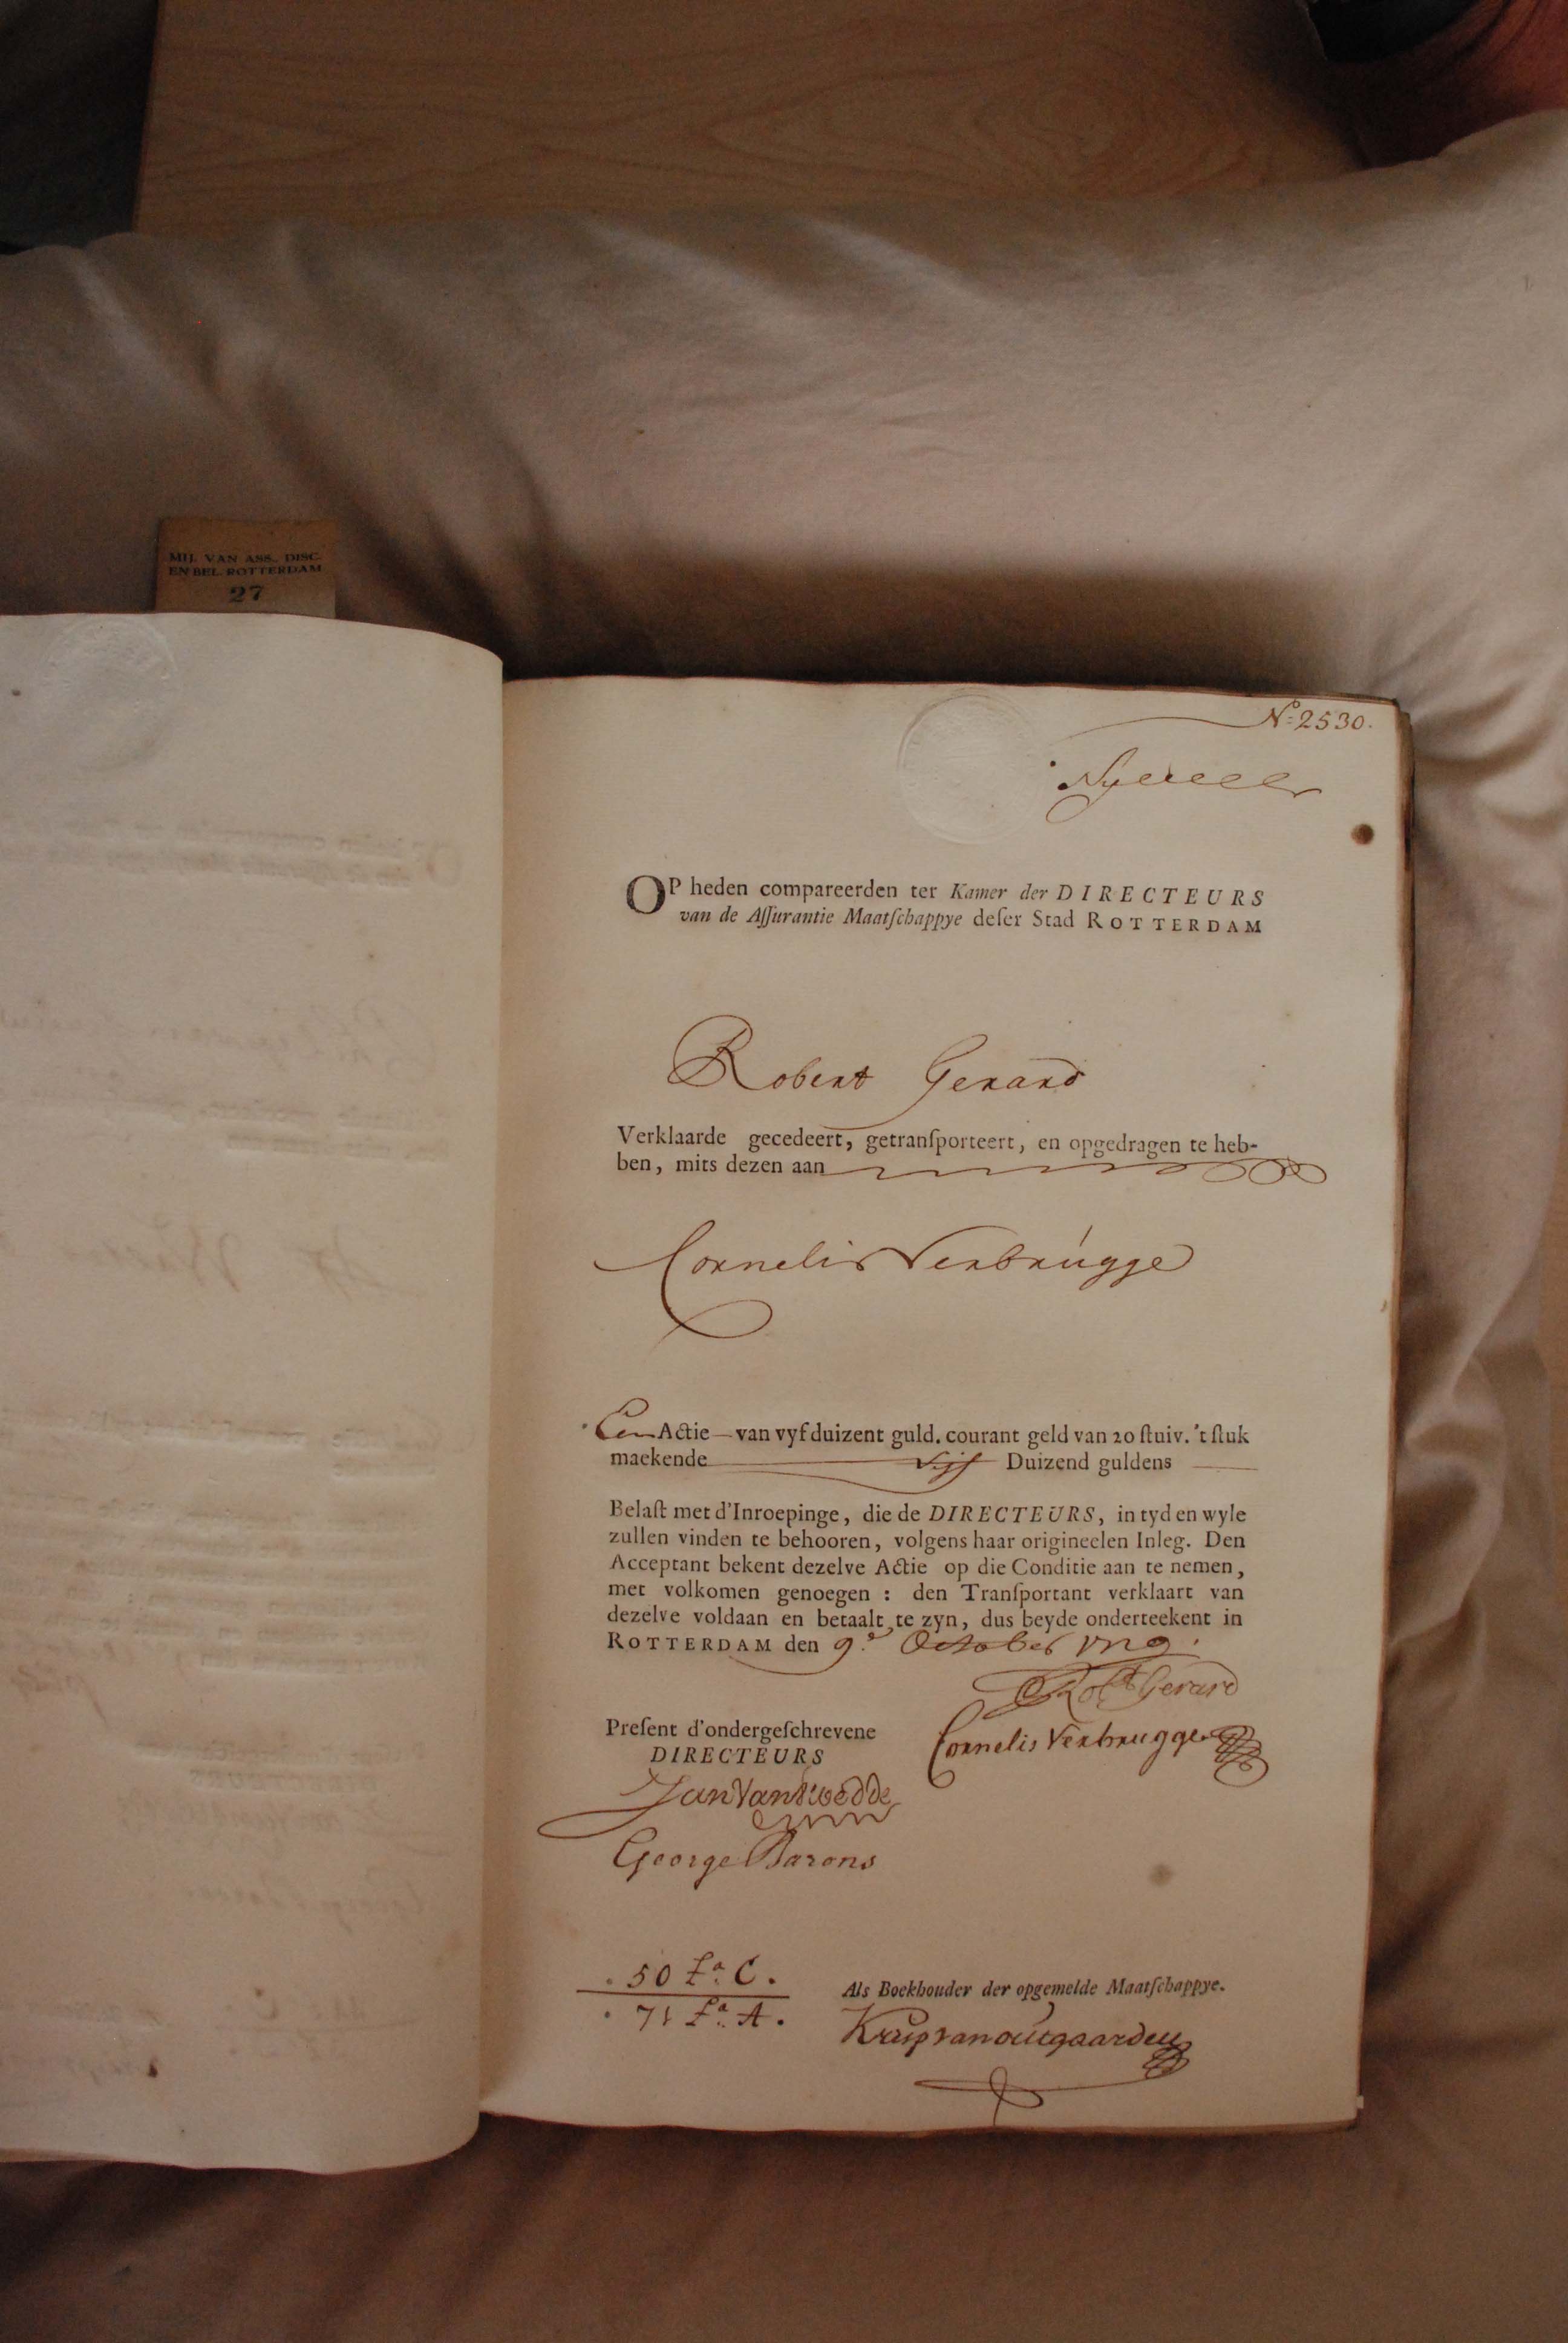 MIJ. VAN ASS., DISC.
EN BEL. ROTTERDAM
27
No. 2530.
OP heden compareerden ter Kamer der DIRECTEURS
van de Aſſurantie Maatſchappye deſer Stad ROTTERDAM
Robert Gerard
Verklaarde gecedeert, getranſporteert, en opgedragen te heb-
ben, mits dezen aan
Cornelis Verbrugge
Een Actie van vyf duizent guld. courant geld van 20 ſtuiv. 't ſtuk
maekende Vijf Duizend guldens
Belaſt met d'Inroepinge, die de DIRECTEURS, in tyd en wyle
zullen vinden te behooren, volgens haar origineelen Inleg. Den
Acceptant bekent dezelve Actie op die Conditie aan te nemen,
met volkomen genoegen : den Tranſportant verklaart van
dezelve voldaan en betaalt te zyn, dus beyde onderteekent in
ROTTERDAM den 9e October
Robt Gerard
Preſent d'ondergeſchrevene
Cornelis Verbrugge
DIRECTEURS
George Barons
50 La. C.
71 La. A.
Als Boekhouder der opgemelde Maatſchappye.